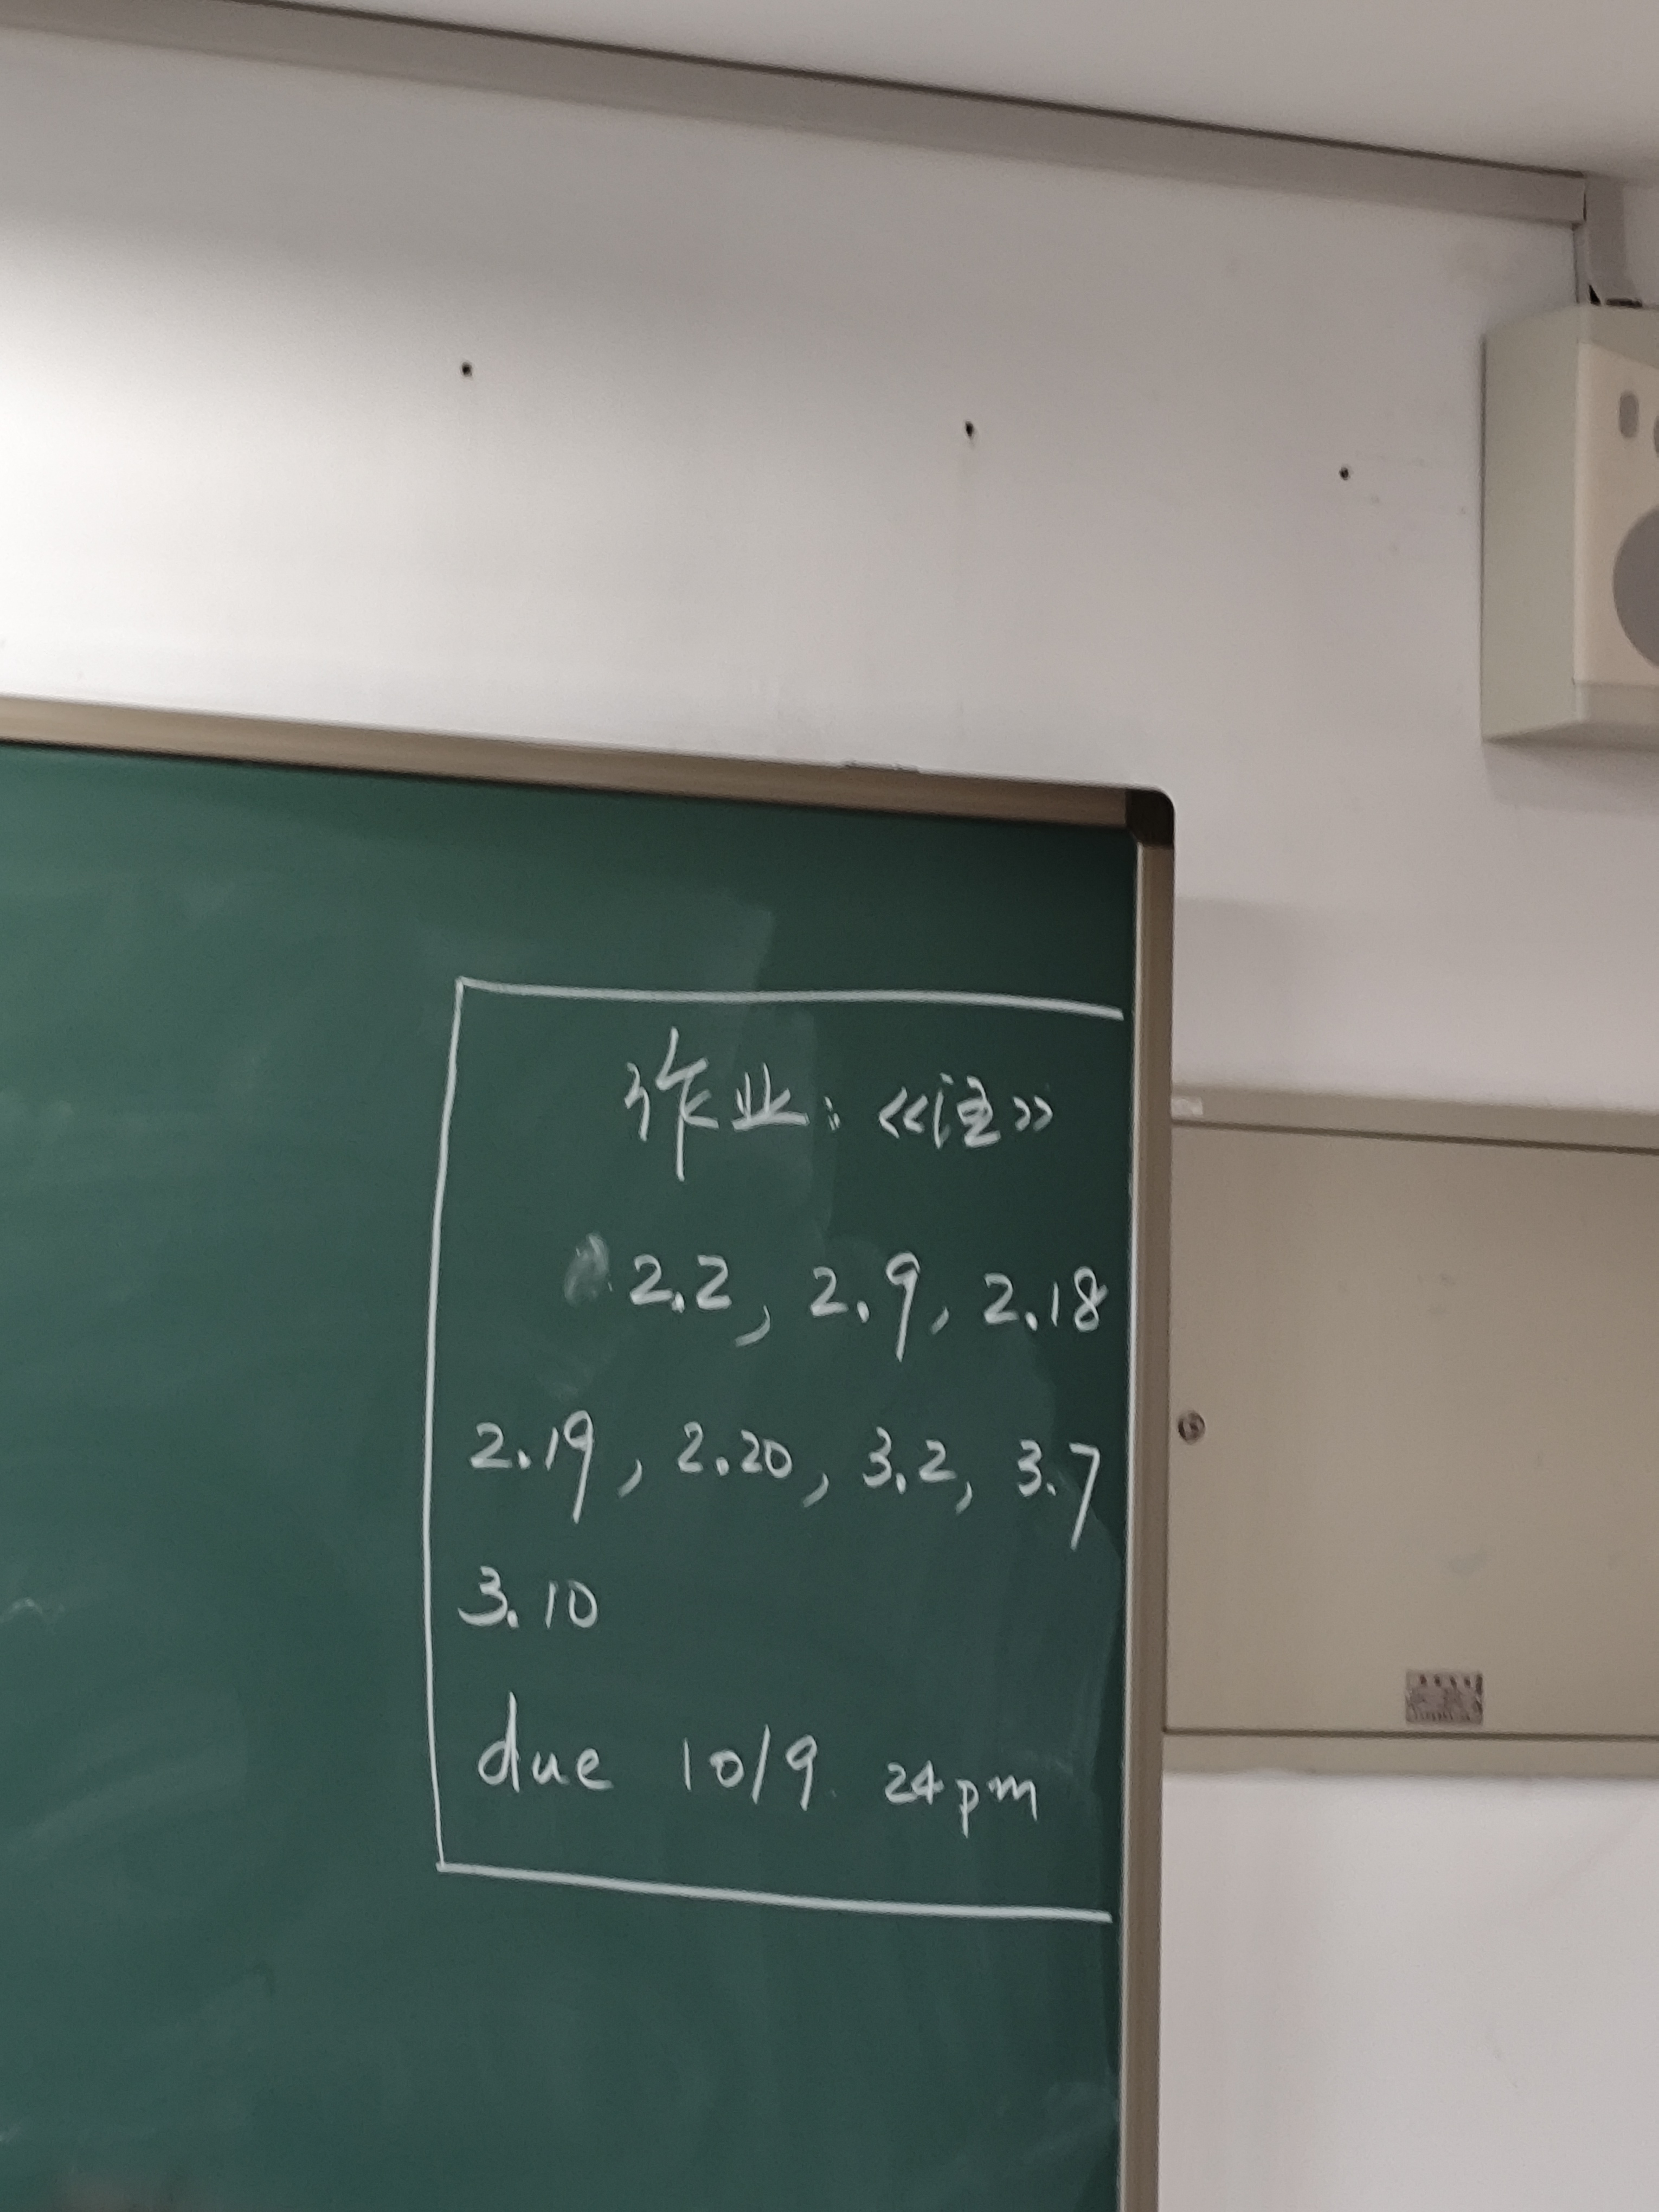 作业：《注》
2.2, 2.9, 2.18
2.19, 2.20, 3.2, 3.7
3.10
due 10/9. 24pm